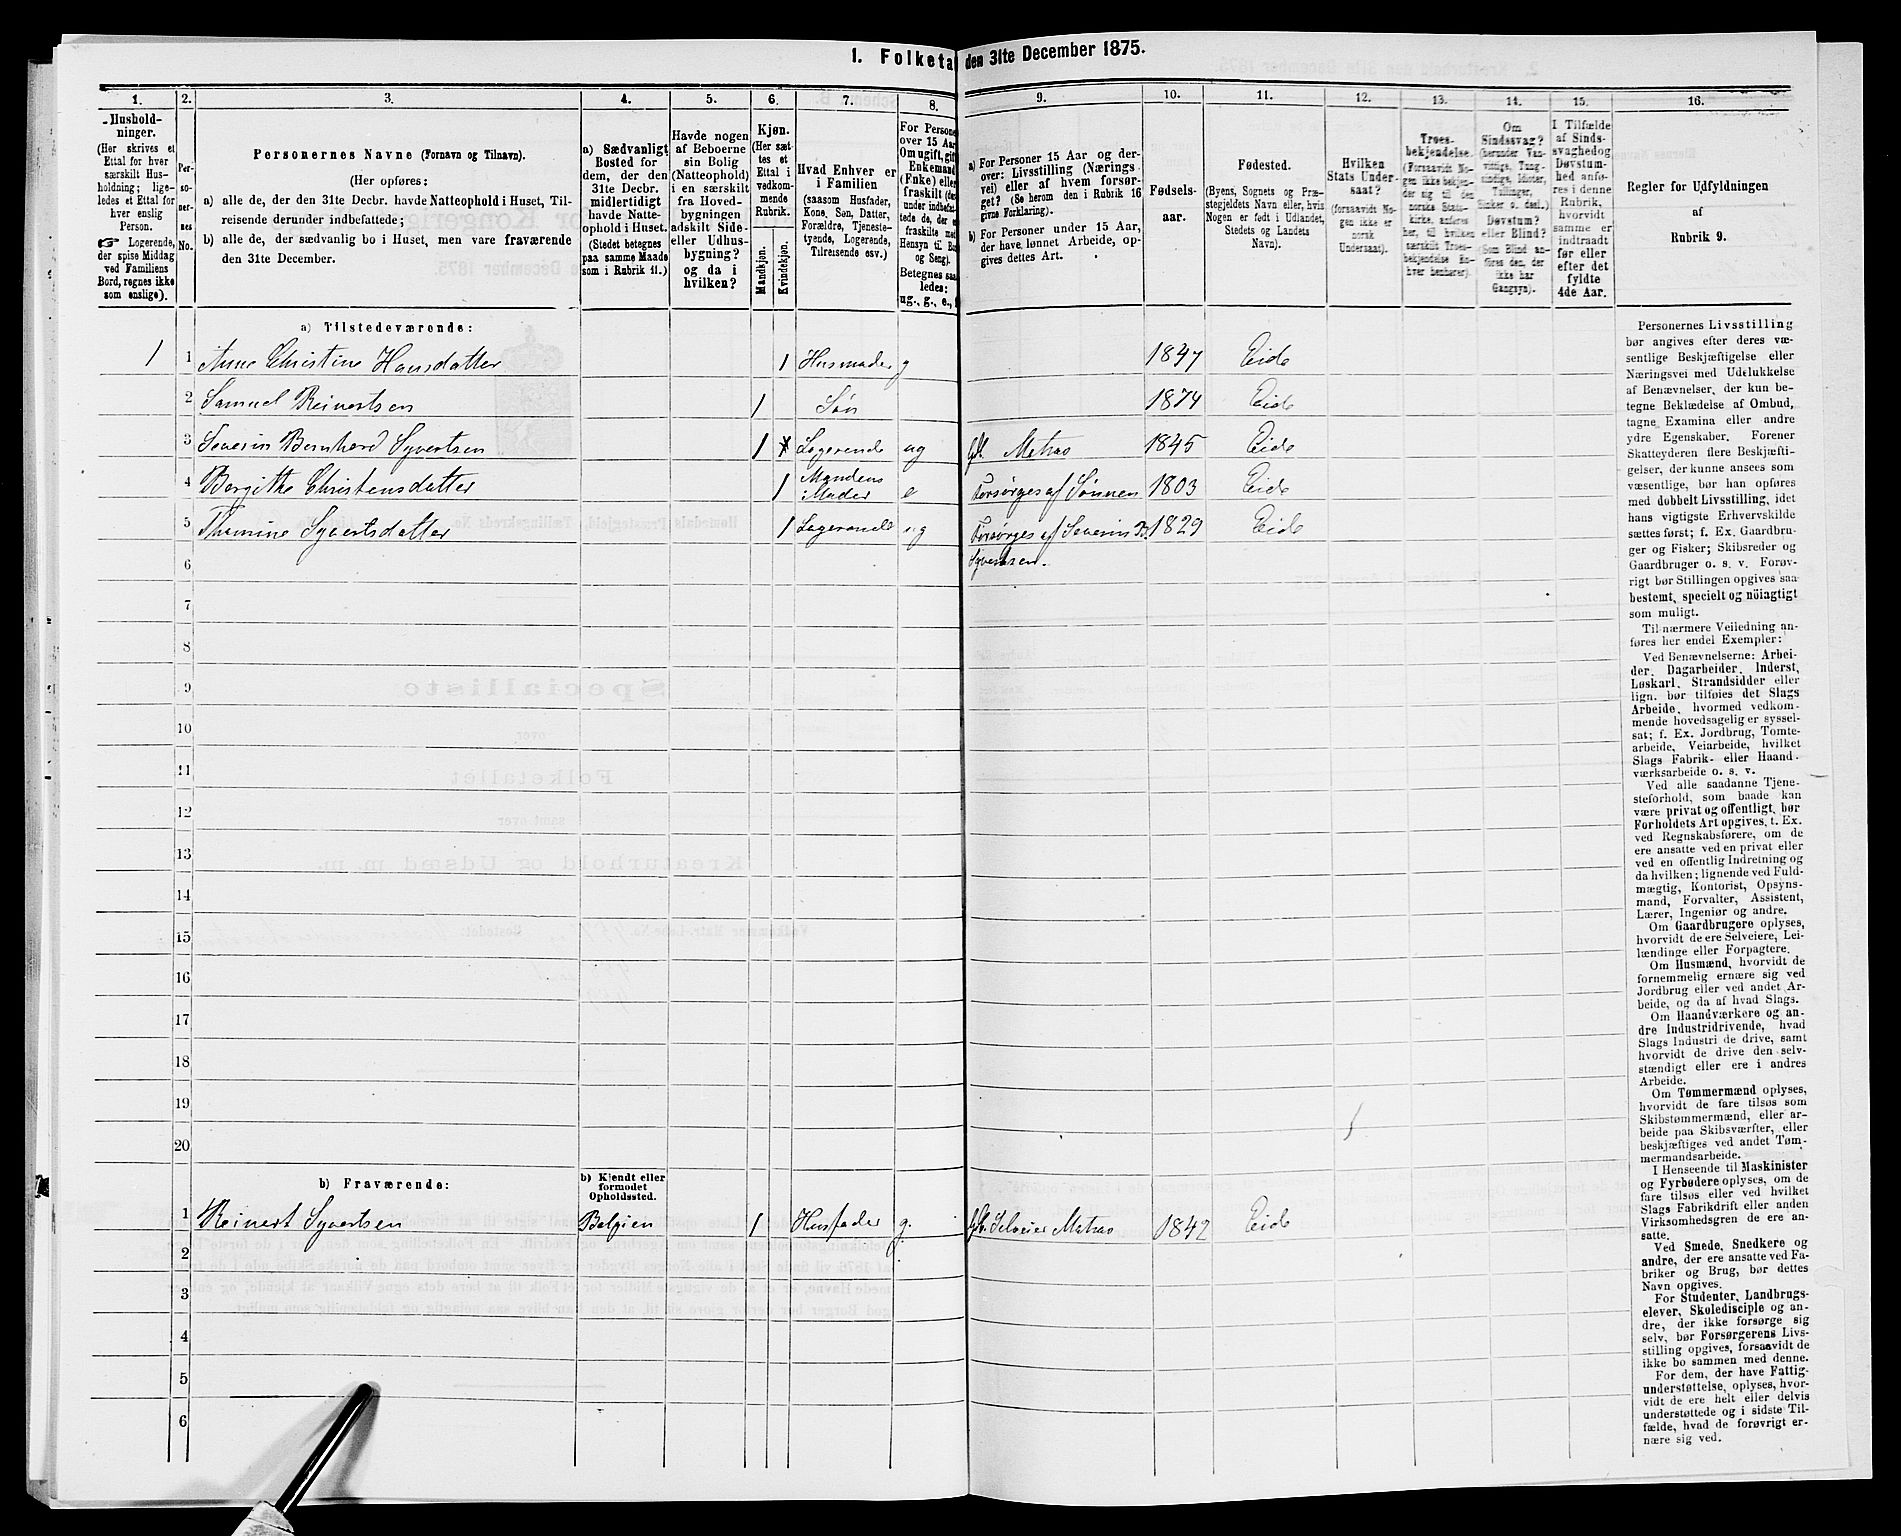 1. Folketa den 31te December 1875.
1. 2. 3. 4. 5. 6. 7. 8. 9. 10. 11. 12. 13. 14. 15. 16.
Hushold-
ninger.
(Her skrives et
Ettal for hver
særskilt Hus-
holdning; lige-
ledes et Ettal
for hver
enslig
Person.
☞ Logerende,
der spise Middag
ved Familiens
Bord, regnes ikke
som enslige).
Per-
so-
ner-
nes
No.
Personernes Navne (Fornavn og Tilnavn).
(Her opføres:
a) alle de, der den 31te Decbr. havde Natteophold i Huset, Til-
reisende derunder indbefattede;
b) alle de, der sædvanlig bo i Huset, men vare fraværende
den 31te December.
a) Sædvanligt
Bosted for
dem, der den
31te Decbr.
midlertidigt
havde Natte-
ophold i Huset.
(Stedet betegnes
paa samme Maade
som i Rubrik 11.)
Havde nogen
af Beboerne
sin Bolig
(Natteophold)
i en særskilt
fra Hoved-
bygningen
adskilt Side-
eller Udhus-
bygning?
og da i
hvilken?
Kjøn.
(Her sæt-
tes et
Ettal i
vedkom-
mende
Rubrik.
Mandkjøn.
Kvindekjøn.
Hvad Enhver er
i Familien
(saasom Husfader,
Kone, Søn, Datter,
Forældre, Tjeneste-
tyende, Logerende,
Tilreisende osv.)
For Persone
over 15 Aar
Om ugift, gift
Enkemand
(Enke) eller
fraskilt
Betegnes saa
ledes:
ug., g., e.,
a) For Personer 15 Aar og der-
over: Livsstilling (Nærings-
vei) eller af hvem forsør-
get? (Se herom den i Rubrik 16
givne Forklaring).
b) For Personer under 15 Aar,
der have lønnet Arbeide, op-
gives dettes Art.
Fødsels-
aar.
Fødested.
(Byens, Sognets og Præ-
stegjeldets Navn eller, hvis
Nogen er født i Udlandet,
Stedets og Landets
Navn).
Hvilken
Stats Under-
saat?
(forsaavidt No-
gen ikke er
norsk
Undersaat).
Troes-
bekjendelse.
(Forsaavidt No-
gen ikke bekjen-
der sig til den
norske Stats-
kirke, anføres
her, til hvilken
særskilt Troes-
bekjendelse En-
hver henhører).
Om
Sindssvag?
(herunder Van-
vittige, Tung-
sindige, Idioter,
Tullinger,
Sinker o. desl.)
Døvstum?
eller Blind?
(Som Blind an-
føres den, der
ikke har
Gangsyn).
I Tilfælde
af Sinds-
svaghed og
Døvstum-
hed anfø-
res i denne
Rubrik,
hvorvidt
samme er
indtraadt
før eller
efter det
fyldte
4de Aar.
Regler for Udfyldningen
af
Rubrik 9.
a) Tilstedeværende:
1 1 Anne Christine Hansdatter 1 Husmoder g 1847 Eide
2 Samuel Reinertsen 1 Søn 1874 Eide
3 Severin Bernhard Syvertsen 1 Logerende ug Matros 1845 Eide
4 Borgithe Christensdatter 1 Mandens Moder e Forsørges af Sønnen 1803 Eide
5 Thomine Syvertsdatter 1 Logerende ug Forsørges af Severin B. 1829 Eide
6 Syvertsen.
7
8
9
10
11
12
13
14
15
16
17
18
19
20
b) Fraværende: b) Kjendt eller
formodet
Opholdssted.
1 Reinert Syvertsen Belgien 1 Husfader g. Selveier Matros 1842 Eide
2
3
4
5
6
Personernes Livsstilling
bør angives efter deres væ-
sentlige Beskjæftigelse eller
Næringsvei med Udelukkelse
af Benævnelser, der kun be-
tegne Beklædelse af Ombud,
tagne Examina eller andre
ydre Egenskaber. Forener
Skatteyderen flere Beskjæfti-
gelser, der kunne ansees som
væsentlige, bør han opføres
med dobbelt Livsstilling, idet
hans vigtigste Erhvervskilde
sættes først; f. Ex. Gaardbru-
ger og Fisker; Skibsreder og
Gaardbruger o. s. v. Forøv-
rigt bør Stillingen opgives saa
bestemt, specielt og nøiagtigt
som muligt.
Til nærmere Veiledning an-
føres her endel Exempler:
Ved Benævnelserne: Arbei-
der, Dagarbeider, Inderst,
Løskarl, Strandsidder eller
lign. bør tilføies det Slags
Arbeide, hvormed vedkom-
mende hovedsagelig er syssel-
sat; f. Ex. Jordbrug, Tomte-
arbeide, Veiarbeide, hvilket
Slags Fabrik- eller Haand-
værksarbeide o. s. v.
Ved alle saadanne Tjene-
steforhold, som baade kan
være privat og offentligt, bør
Forholdets Art opgives, t. Ex.
ved Regnskabsførere, om de
ere ansatte ved en privat eller
ved en offentlig Indretning og
da hvilken; lignende ved Fuld-
mægtig, Kontorist, Opsyns-
mand, Forvalter, Assistent,
Lærer, Ingeniør og andre.
Om Gaardbrugere oplyses,
hvorvidt de ere Selveiere, Lei-
lændinge eller Forpagtere.
Om Husmænd, hvorvidt de
fornemmelig ernære sig ved
Jordbrug eller ved andet Ar-
beide, og da af hvad Slags.
Om Haandværkere og an-
dre Industridrivende, hvad
Slags Industri de drive, samt
hvorvidt de drive den selv-
stændigt eller ere i andres
Arbeide.
Om Tømmermænd oplyses,
hvorvidt de fare tilsøs som
Skibstømmermænd, eller ar-
beide paa Skibsværfter, eller
beskjæftiges ved andet Tøm-
mermandsarbeide.
I Henseende til Maskinister
og Fyrbødere oplyses, om de
fare tilsøs eller ved hvilket
Slags Fabrikdrift eller anden
Virksomhedsgren de ere an-
satte.
Ved Smede, Snedkere og
andre, der ere ansatte ved Fa-
briker og Brug, bør dettes
Navn opgives.
For Studenter, Landbrugs-
elever, Skoledisciple og an-
dre, der ikke forsørge sig
selv, bør Forsørgerens Livs-
stilling opgives, forsaavidt de
ikke bo sammen med denne.
For dem, der have Fattig-
understøttelse, oplyses, hvor-
vidt de ere helt eller delvis
understøttede og i sidste Til-
fælde, hvad de forøvrigt er-
nære sig ved.